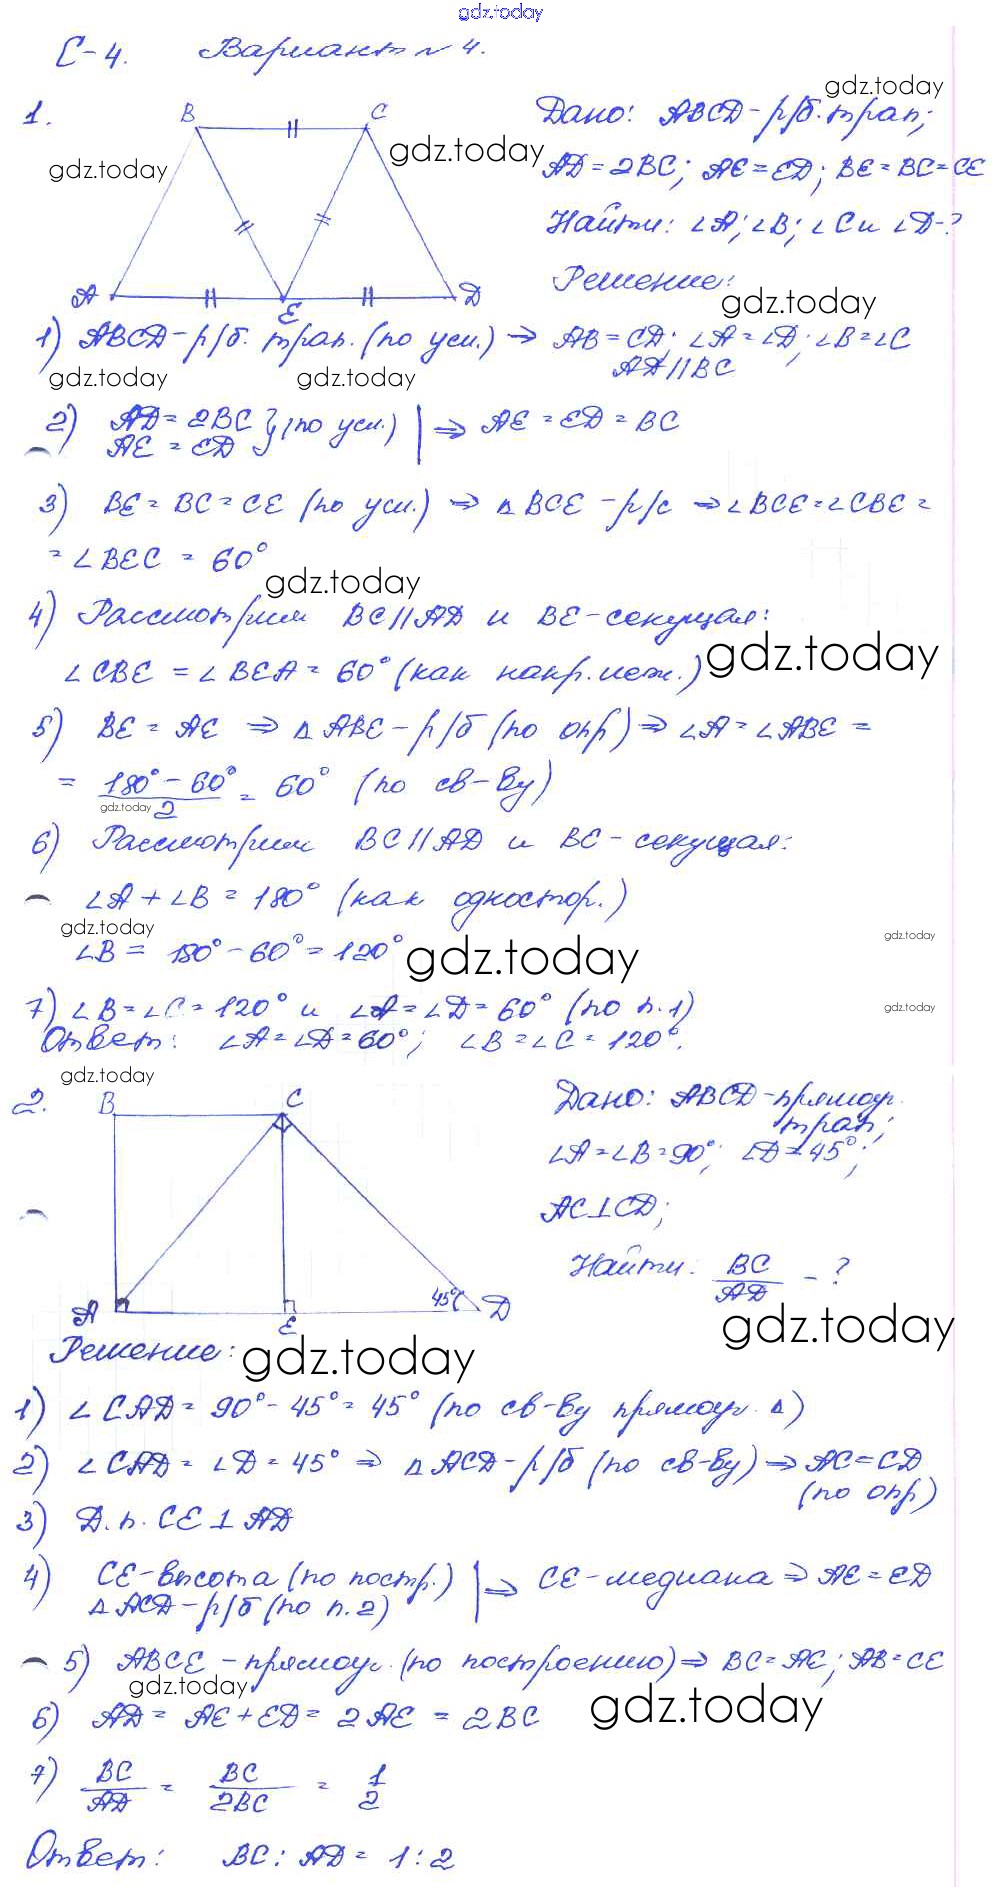 gdz.today
С-4. Вариант №4.
1.
B C
A E D
Дано: ABCD-р/б.трап;
AD=2BC; AE=ED; BE=BC=CE
Найти: ∠A; ∠B; ∠C и ∠D-?
Решение:
gdz.today
gdz.today
gdz.today
gdz.today
1) ABCD-р/б. трап. (по усл.) ⇒ AB=CD; ∠A=∠D; ∠B=∠C
AD||BC
gdz.today
gdz.today
2) AD=2BC
AE=ED } (по усл.) | ⇒ AE=ED=BC
3) BE=BC=CE (по усл.) ⇒ △BCE-р/с ⇒ ∠BCE=∠CBE=
=∠BEC=60°
gdz.today
4) Рассмотрим BC||AD и BE-секущая:
∠CBE=∠BEA=60° (как накр.леж.)
gdz.today
5) BE=AE ⇒ △ABE-р/б (по опр) ⇒ ∠A=∠ABE=
= (180°-60°)/2 = 60° (по св-ву)
gdz.today
6) Рассмотрим BC||AD и BE-секущая:
∠A+∠B=180° (как одностор.)
gdz.today
∠B=180°-60°=120°
gdz.today
gdz.today
7) ∠B=∠C=120° и ∠A=∠D=60° (по п.1)
gdz.today
Ответ: ∠A=∠D=60°; ∠B=∠C=120°.
gdz.today
2.
B C
A E 45° D
Дано: ABCD-прямоуг.
трап;
∠A=∠B=90°; ∠D=45°;
AC⊥CD;
Найти: BC/AD-?
gdz.today
Решение:
gdz.today
1) ∠CAD=90°-45°=45° (по св-ву прямоуг. △)
2) ∠CAD=∠D=45° ⇒ △ACD-р/б (по св-ву) ⇒ AC=CD
(по опр)
3) Д.п. CE⊥AD
4) CE-высота (по постр.) | ⇒ CE-медиана ⇒ AE=ED
△ACD-р/б (по п.2)
5) ABCE-прямоуг. (по построению) ⇒ BC=AE; AB=CE
gdz.today
gdz.today
6) AD=AE+ED=2AE=2BC
7) BC/AD = BC/2BC = 1/2
Ответ: BC:AD=1:2